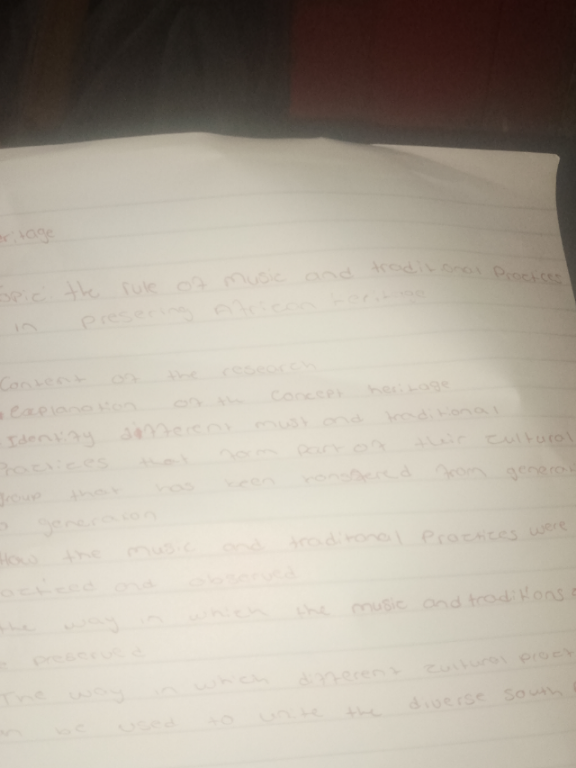 eritage
opic the rule of music and traditional Practices
in presering African heritage
Content of the research
• Explanation of th concept heritage
Identify different must and traditional
Practices that form part of their cultural
group that has been from generat
o generacon
How the music and traditional Practices were
and observed
the way in which the music and traditions
preserved
The way in which different cultural pract
an be used to unite the diverse south